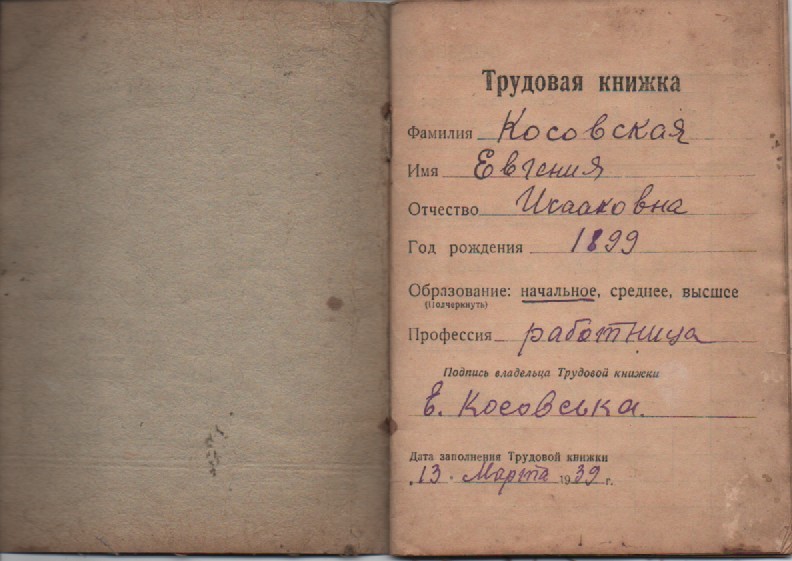 Трудовая книжка
Фамилия Косовская
Имя Евгения
Отчество Исааковна
Год рождения 1899
Образование: начальное, среднее, высшее
(Подчеркнуть)
Профессия работница
Подпись владельца Трудовой книжки
Е. Косовська.
Дата заполнения Трудовой книжки
13. Марта 1939 г.